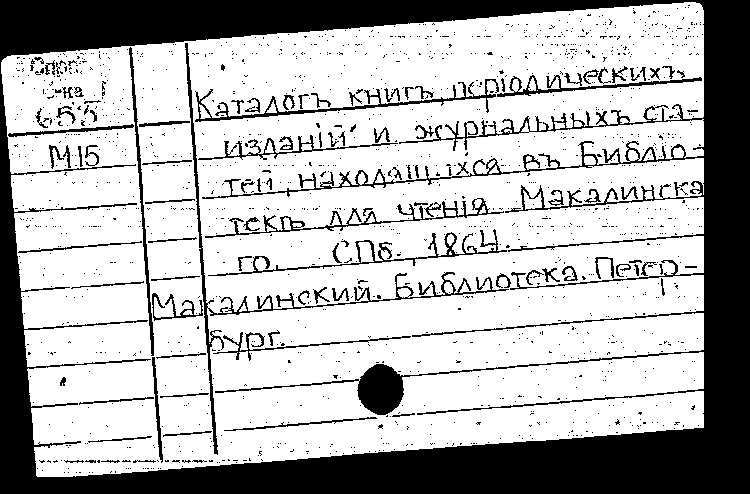 Спрг.
653
М15
Каталогъ книгъ, періодическихъ
изданій и журнальныхъ ста-
тей, находящихся въ Библіо-
текѣ для чтенія Макалинска
го. СПб., 1864.
Макалинский. Библиотека. Петер-
бург.